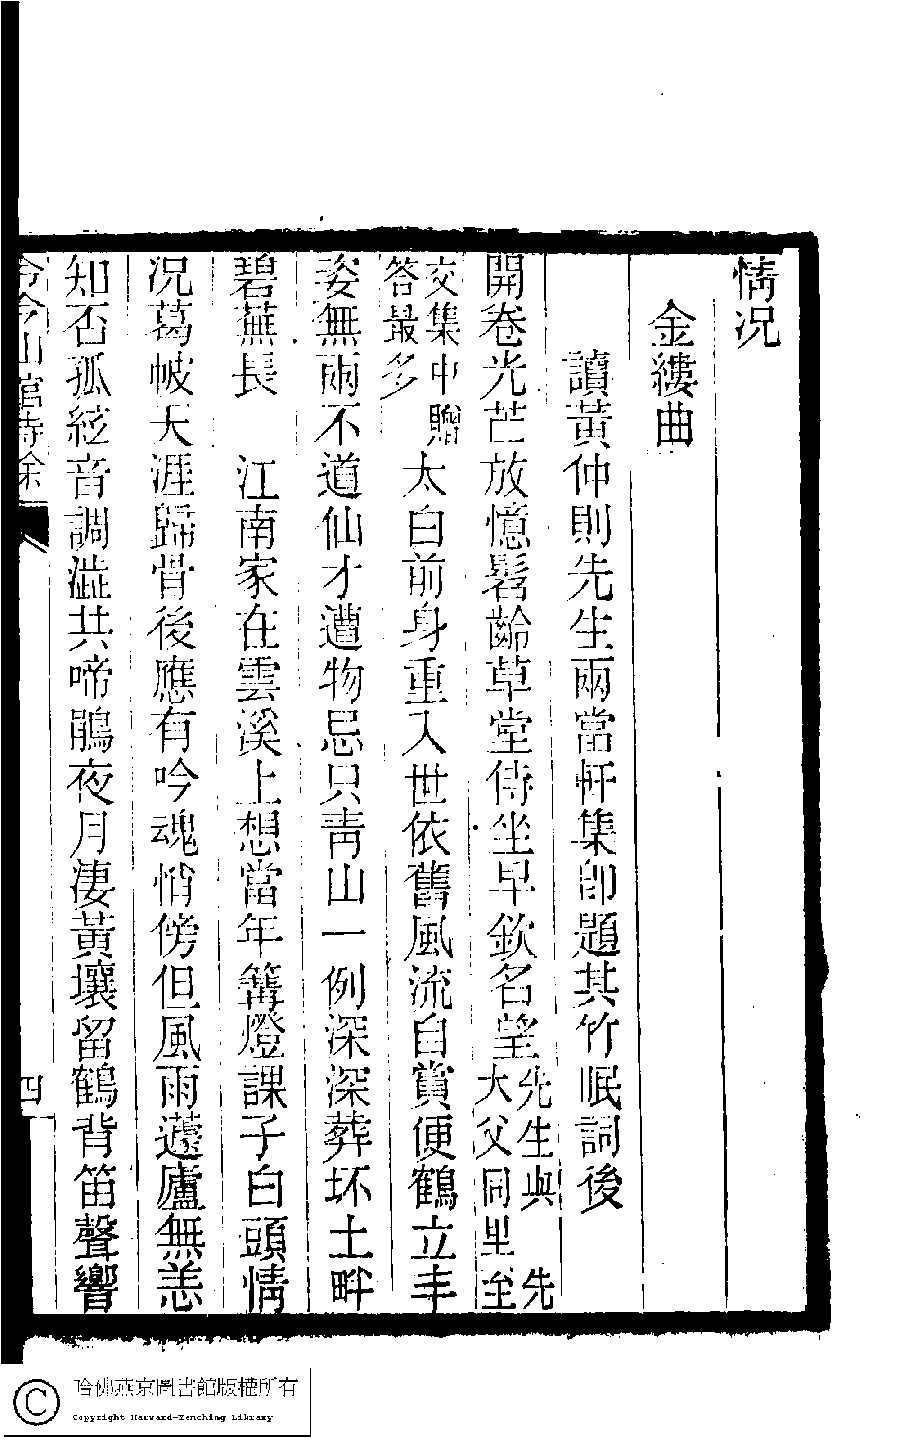 情况
金縷曲
讀黃仲則先生兩當軒集即題其竹眠詞後
開卷光芒放憶髫齡草堂侍坐早欽名望先生與　先
大父同里至
交集中贈
答最多太白前身重入世依舊風流自賞便鶴立丰
姿無兩不道仙才遭物忌只青山一例深深葬坏土畔
碧蕪長　江南家在雲溪上想當年篝燈課子白頭情
况葛帔天涯歸骨後應有吟魂悄傍但風雨蘧廬無恙
知否孤絃音調澁共啼鵑夜月淒黃壤留鶴背笛聲響
館詩餘
四
哈佛燕京圖書館版權所有
Copyright Harvard-Yenching Library